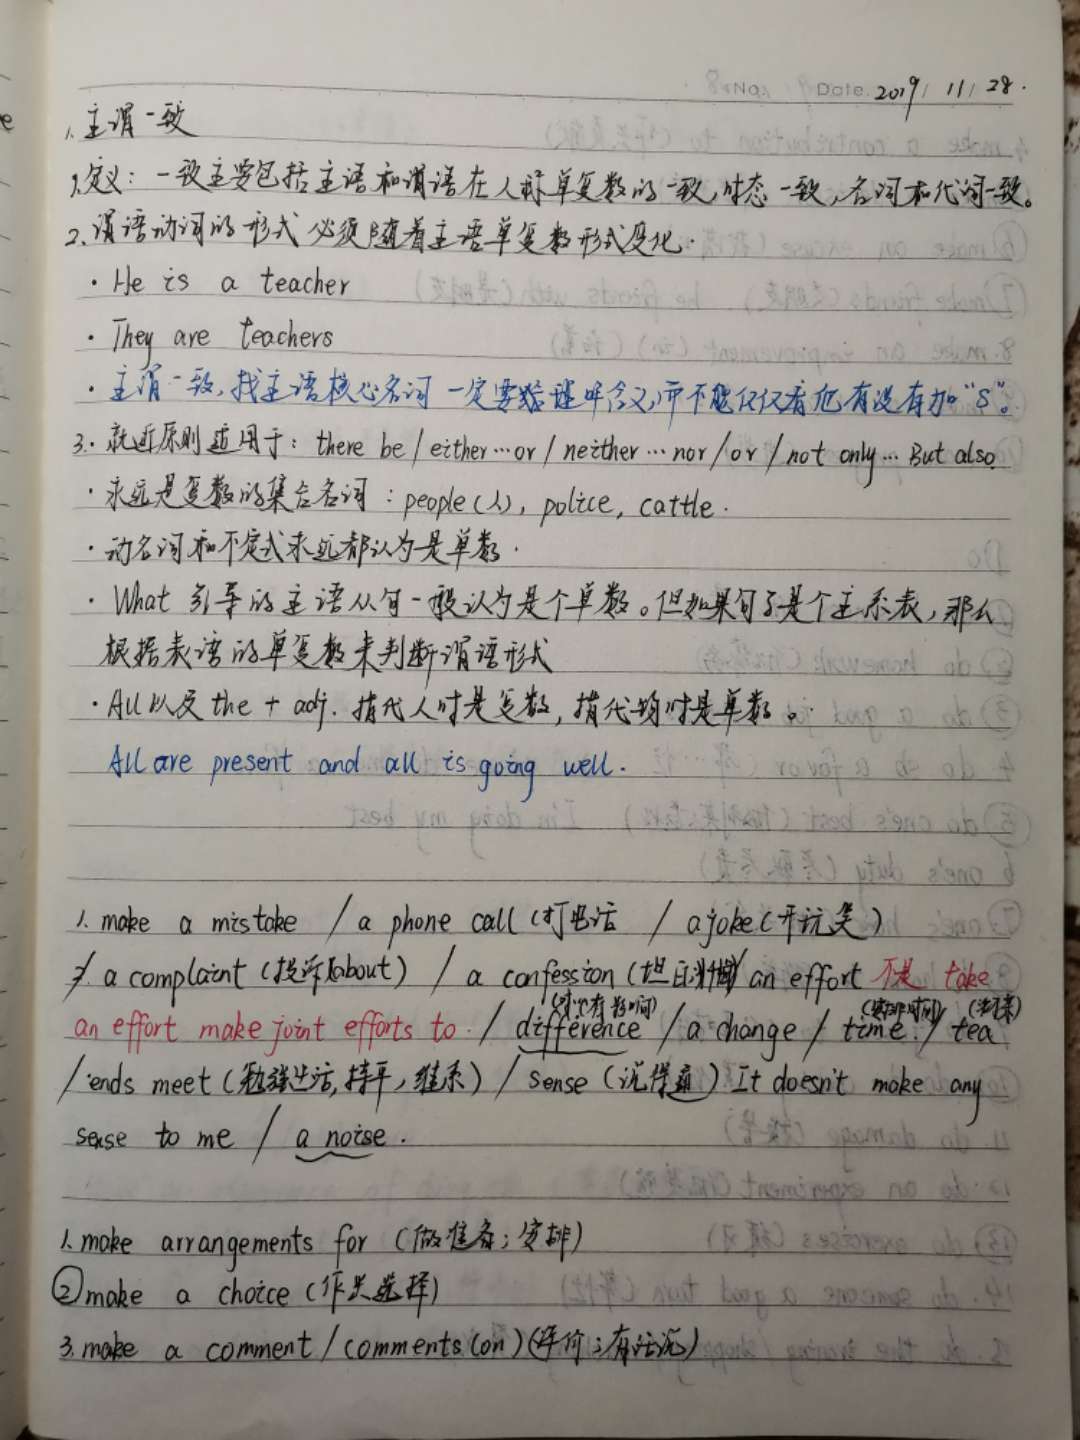 No. Date. 2019 / 11 / 28.
1. 主谓一致
1. 定义：一致主要包括主语和谓语在人称单复数的一致，时态一致，名词和代词一致。
2. 谓语动词的形式必须随着主语单复数形式变化.
· He is a teacher
· They are teachers
· 主谓一致，找主语核心名词 一定要 含义，而不能仅仅看他有没有加“S”。
3. 就近原则适用于：there be / either … or / neither … nor / or / not only … But also
· 永远是复数的集合名词：people (人), police, cattle.
· 动名词和不定式永远都认为是单数.
· What 引导的主语从句一般认为是个单数。但如果句子是个主系表，那么
根据表语的单复数来判断谓语形式
· All 以及 the + adj. 指代人时是复数，指代物时是单数。
All are present and all is going well.
1. make a mistake / a phone call (打电话 / a joke (开玩笑)
2. / a complaint (投诉 about) / a confession (坦白 / an effort 不是 take
(对…有影响) (安排时间) (沏茶)
an effort make joint efforts to. / difference / a change / time. / tea
/ ends meet (勉强生活, 持平, 维系) / sense (说得通) It doesn't make any
sense to me / a noise.
1. make arrangements for (做准备；安排)
② make a choice (作出选择)
3. make a comment / comments (on) (评价；有话说)